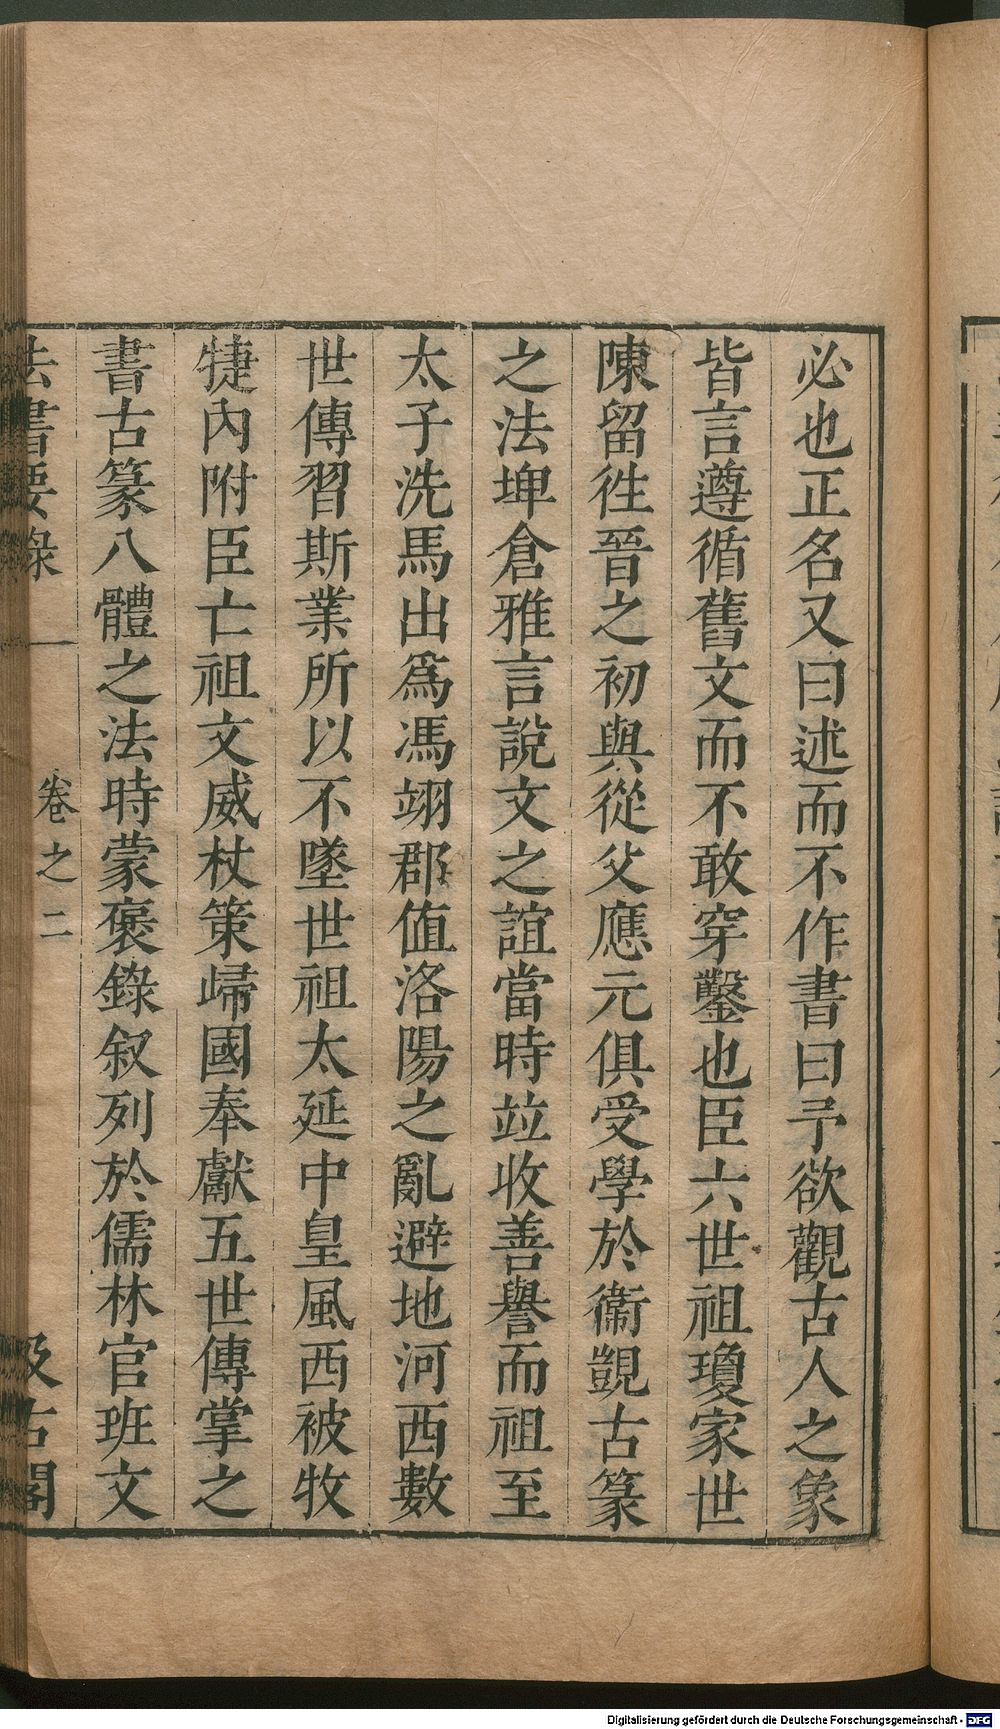 必也正名又曰述而不作書曰予欲觀古人之象
皆言遵循舊文而不敢穿鑿也臣六世祖瓊家世
陳留徃晉之初與從父應元俱受學於衞覬古篆
之法埤倉雅言說文之誼當時竝收善譽而祖至
太子洗馬出爲馮翊郡値洛陽之亂避地河西數
世傳習斯業所以不墜世祖太延中皇風西被牧
犍內附臣亡祖文威杖策歸國奉獻五世傳掌之
書古篆八體之法時蒙褒錄叙列於儒林官班文
法書要錄
卷之二
汲古閣
Digitalisierung gefördert durch die Deutsche Forschungsgemeinschaft - DFG